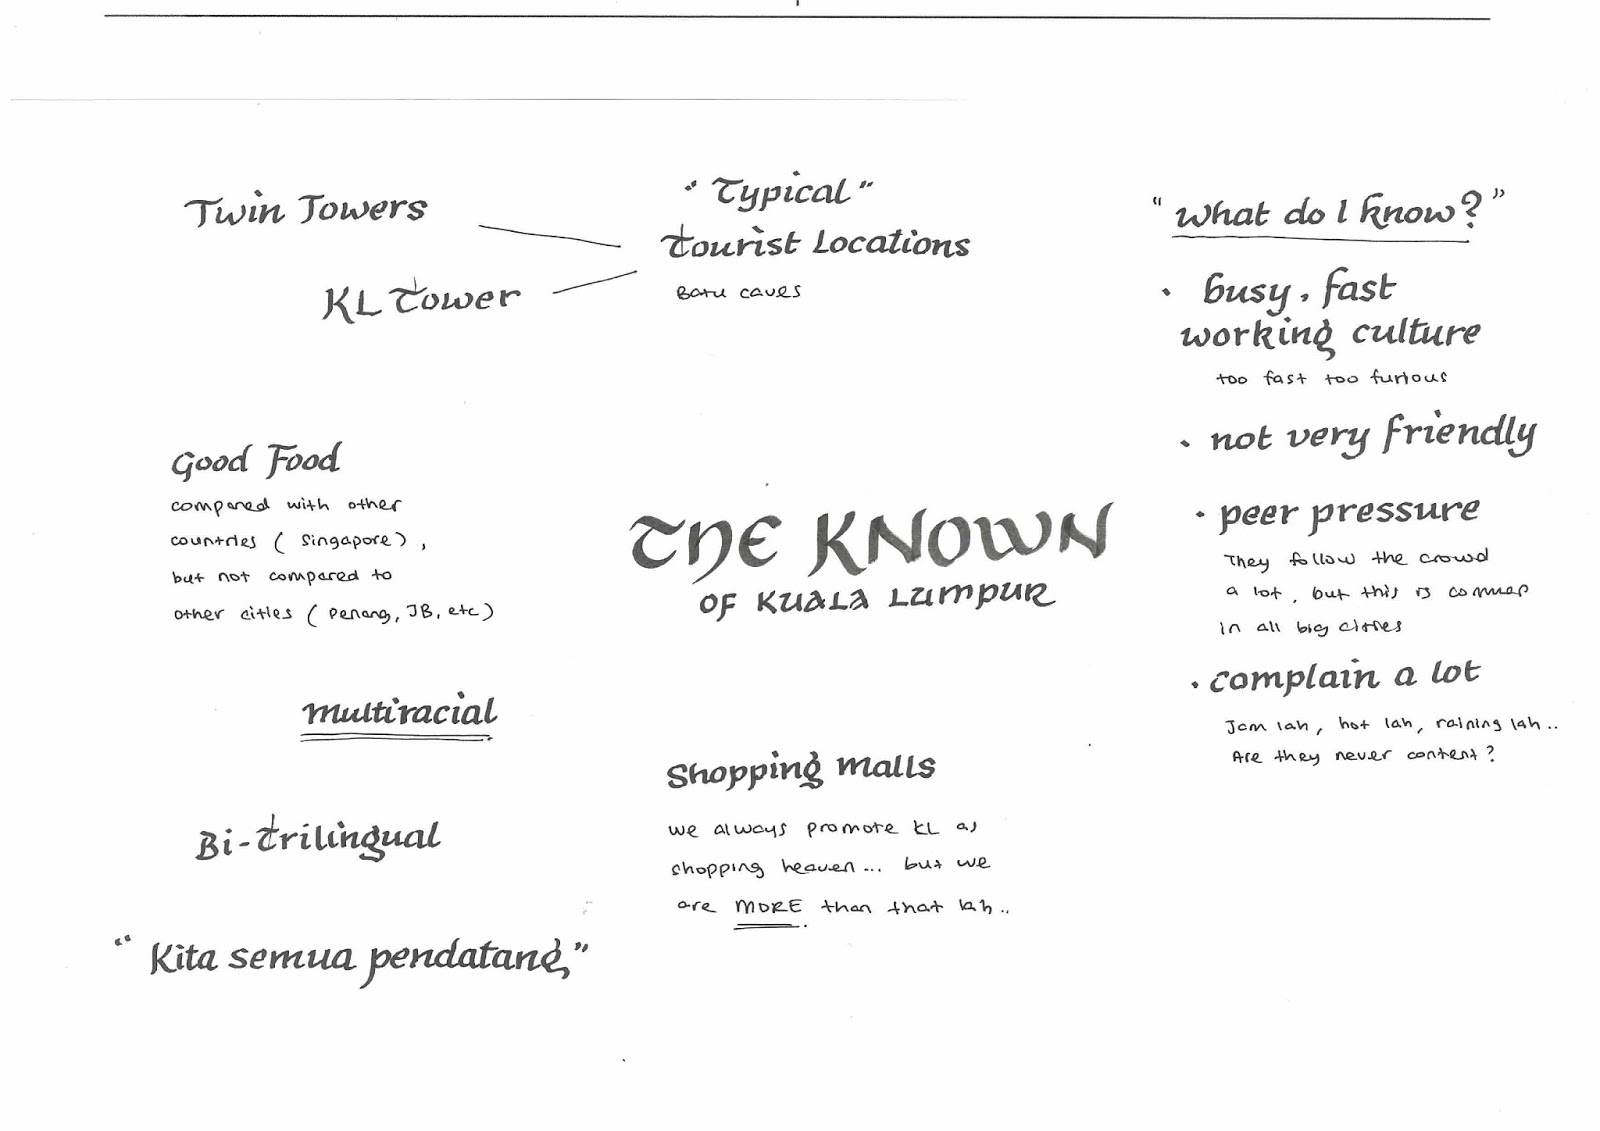 Twin Towers
KL Tower
"Typical"
Tourist Locations
Batu caves
Good Food
compared with other
countries ( Singapore ) ,
but not compared to
other cities ( Penang, JB, etc )
multiracial
Bi-trilingual
"Kita semua pendatang"
THE KNOWN
OF KUALA LUMPUR
Shopping malls
we always promote KL as
shopping heaven... but we
are MORE than that lah..
"What do I know?"
• busy, fast
working culture
too fast too furious
• not very friendly
• peer pressure
They follow the crowd
a lot, but this is common
in all big cities
• complain a lot
Jam lah, hot lah, raining lah..
Are they never content?